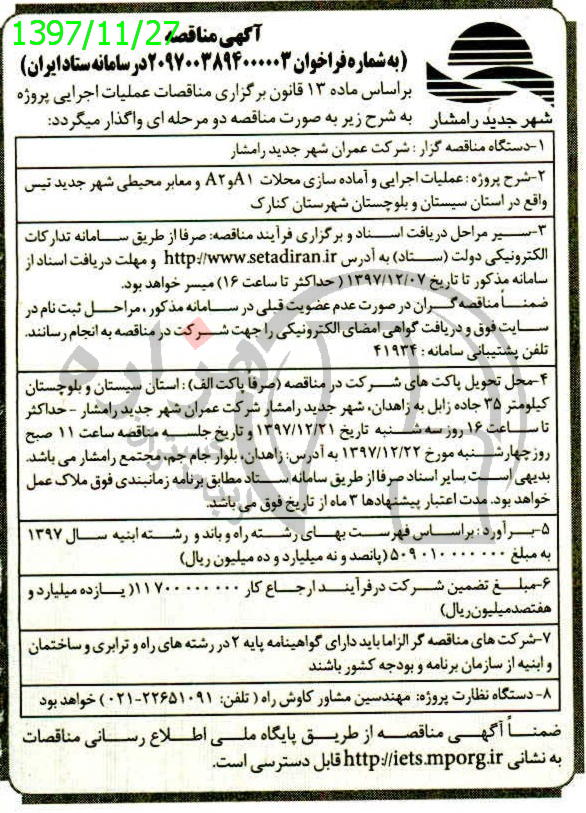 1397/11/27
آگهی مناقصه
(به شماره فراخوان ۲۰۹۷۰۰۳۸۹۴۰۰۰۰۰۳ در سامانه ستاد ایران)
براساس ماده ۱۳ قانون برگزاری مناقصات عملیات اجرایی پروژه
به شرح زیر به صورت مناقصه دو مرحله ای واگذار میگردد:
شهر جدید رامشار
۱-دستگاه مناقصه گزار : شرکت عمران شهر جدید رامشار
۲-شرح پروژه : عملیات اجرایی و آماده سازی محلات A۱ و A۲ و معابر محیطی شهر جدید تیس
واقع در استان سیستان و بلوچستان شهرستان کنارک
۳-سیر مراحل دریافت اسناد و برگزاری فرآیند مناقصه: صرفا از طریق سامانه تدارکات
الکترونیکی دولت (ستاد) به آدرس http://www.setadiran.ir و مهلت دریافت اسناد از
سامانه مذکور تا تاریخ ۱۳۹۷/۱۲/۰۷ ( حداکثر تا ساعت ۱۶) میسر خواهد بود.
ضمناً مناقصه گران در صورت عدم عضویت قبلی در سامانه مذکور ،مراحل ثبت نام در
سایت فوق و دریافت گواهی امضای الکترونیکی را جهت شرکت در مناقصه به انجام رسانند.
تلفن پشتیبانی سامانه : ۴۱۹۳۴
۴-محل تحویل پاکت های شرکت در مناقصه (صرفا پاکت الف) : استان سیستان و بلوچستان
کیلومتر ۳۵ جاده زابل به زاهدان، شهر جدید رامشار شرکت عمران شهر جدید رامشار - حداکثر
تا ساعت ۱۶ روز سه شنبه تاریخ ۱۳۹۷/۱۲/۲۱ و تاریخ جلسه مناقصه ساعت ۱۱ صبح
روز چهارشنبه مورخ ۱۳۹۷/۱۲/۲۲ به آدرس: زاهدان، بلوار جام جم، مجتمع رامشار می باشد.
بدیهی است سایر اسناد صرفا از طریق سامانه ستاد مطابق برنامه زمانبندی فوق ملاک عمل
خواهد بود. مدت اعتبار پیشنهادها ۳ ماه از تاریخ فوق می باشد.
۵-برآورد : براساس فهرست بهای رشته راه و باند و رشته ابنیه سال ۱۳۹۷
به مبلغ ۵۰۹۰۱۰۰۰۰۰۰۰ (پانصد و نه میلیارد و ده میلیون ریال)
۶-مبلغ تضمین شرکت در فرآیند ارجاع کار ۱۱۷۰۰۰۰۰۰۰۰( یازده میلیارد و
هفتصد میلیون ریال)
۷-شرکت های مناقصه گر الزاما باید دارای گواهینامه پایه ۲ در رشته های راه و ترابری و ساختمان
و ابنیه از سازمان برنامه و بودجه کشور باشند
۸- دستگاه نظارت پروژه: مهندسین مشاور کاوش راه ( تلفن: ۲۲۶۵۱۰۹۱-۰۲۱) خواهد بود
ضمناً آگهی مناقصه از طریق پایگاه ملی اطلاع رسانی مناقصات
به نشانی http://iets.mporg.ir قابل دسترسی است.